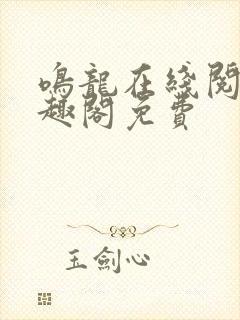 鳴龍在綫閱
趣閣免費
玉劍心